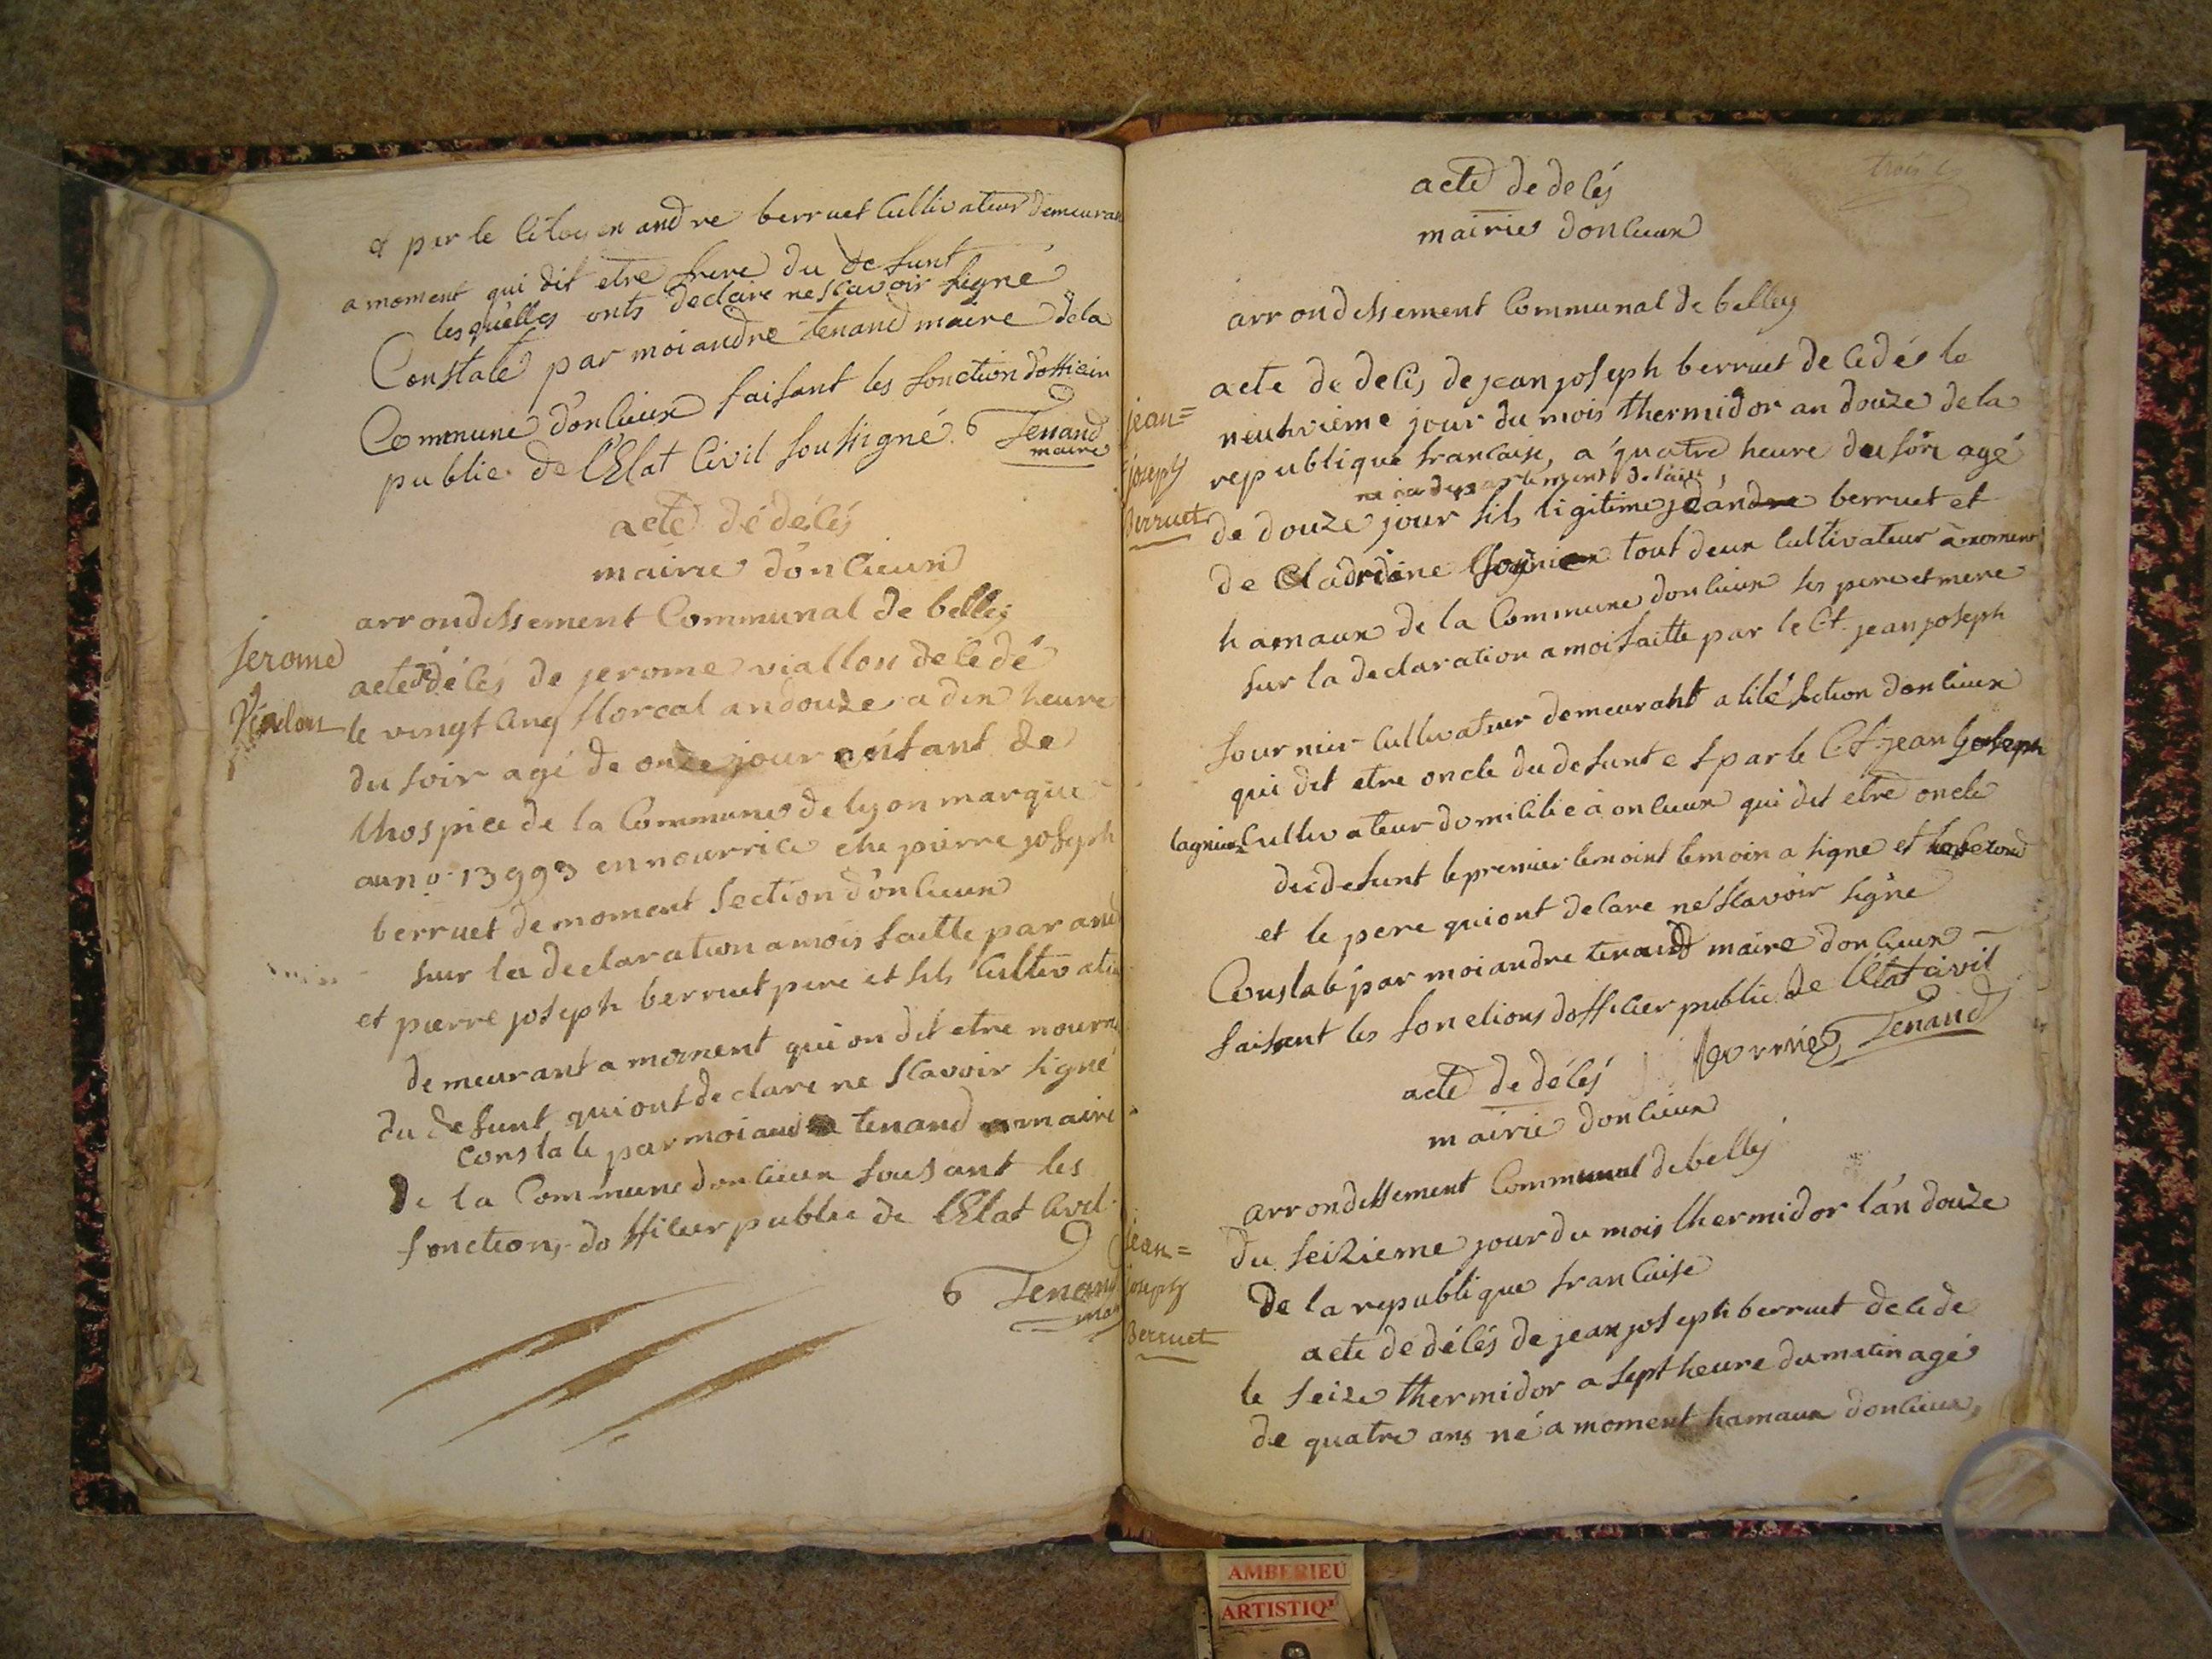 et par le Citoyen andre berruet Cultivateur demeuran
a moment qui dit etre frere du defunt
lesquelles onts declaire ne scavoir signé
Constaté par moi andre tenand maire de la
Commune d'onlieux faisant les fonction d'officier
public de l'Etat Civil soussigné Tenand
maire
acte de décés
mairie d'onlieux
arrondissement Communal de belley
Jerome
Vialon
acte de décés de jerome viallon décédé
le vingt cinq floreal an douze a dix heure
du soir agé de onze jour enfant de
lhospice de la Commune de lyon marque
au no. 13993 en nourrice ché pierre joseph
berruet de moment section d'onlieux
sur la declaration a mois faitte par and
et pierre joseph berruet pere et fils Cultivate
demeurant a moment qui on dit etre nourri
du defunt qui ont declare ne scavoir signé
Constate par moi tenand maire
de la Commune donlieux faisant les
fonctions dofficier public de l'Etat Civil
Tenand
mai
trois
acte de decés
mairie donlieux
arrondissement Communal de belley
jean=
joseph
Berruet
acte de decés de jean joseph berruet decedés le
neuhvieme jour du mois thermidor an douze de la
republique francaise, a quatre heure du soir agé
ne departement de l'ain
de douze jour fils ligitime berruet et
de tout deux Cultivateur à moment
hamaux de la Commune donlieux ses pere et mere
sur la declaration a moi faitte par le Ct. jean joseph
fournier Cultivateur demeurant a section donlieux
qui dit etre oncle du defunt et par le Ct. jean joseph
lagnier Cultivateur domicilie à onlieux qui dit etre oncle
du defunt le premier temoint temoin a signe et le second
et le pere qui ont delare ne scavoir signe
Constaté par moi andre tenand maire donlieux
faisant les fonctions dofficier public de l'Etat civil
Tenand
acte de décés
mairie donlieux
arrondissement Communal de belley
jean=
joseph
Berruet
du seizieme jour du mois thermidor l'an douze
de la republique francaise
acte de décés de jean joseph berruet decede
le seize thermidor a sept heure du matin agé
de quatre ans né a moment hamaux donlieux,
AMBERIEU
ARTISTIQ'